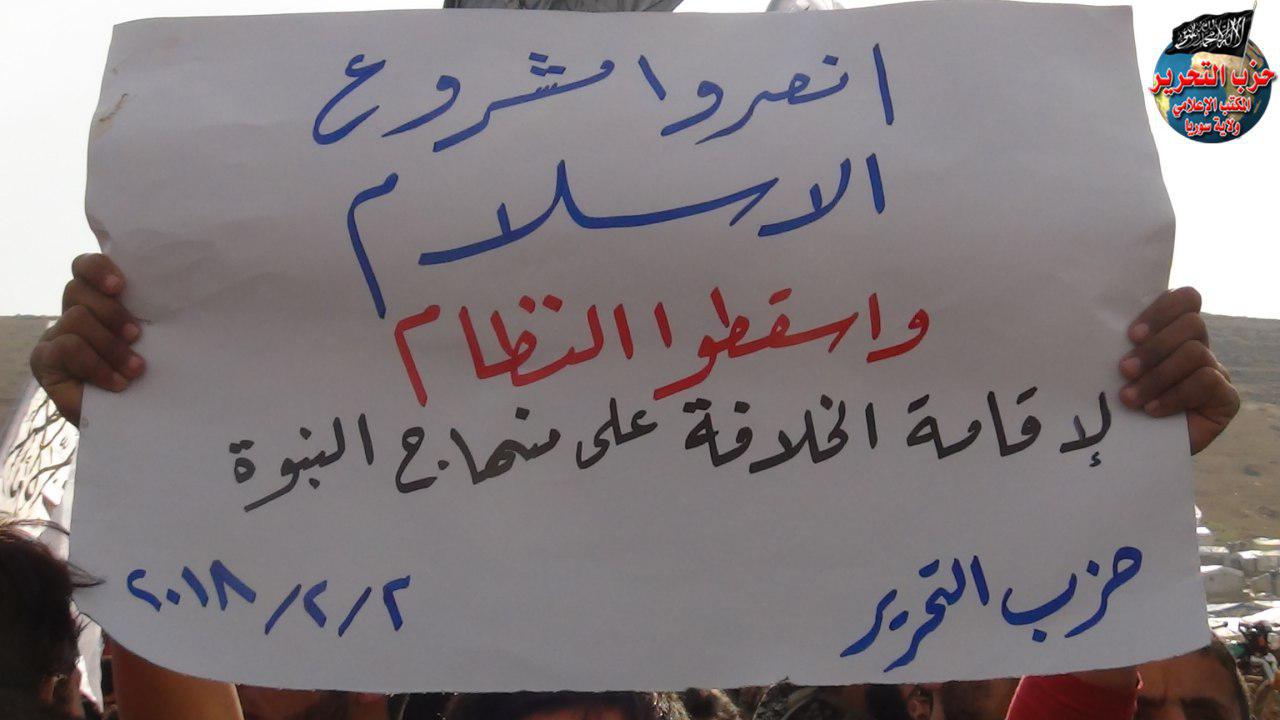 انصروا مشروع
الاسلام
واسقطوا النظام
لإقامة الخلافة على منهاج النبوة
حزب التحرير
٢/٢/٢٠١٨
حزب التحرير
المكتب الإعلامي
ولاية سوريا